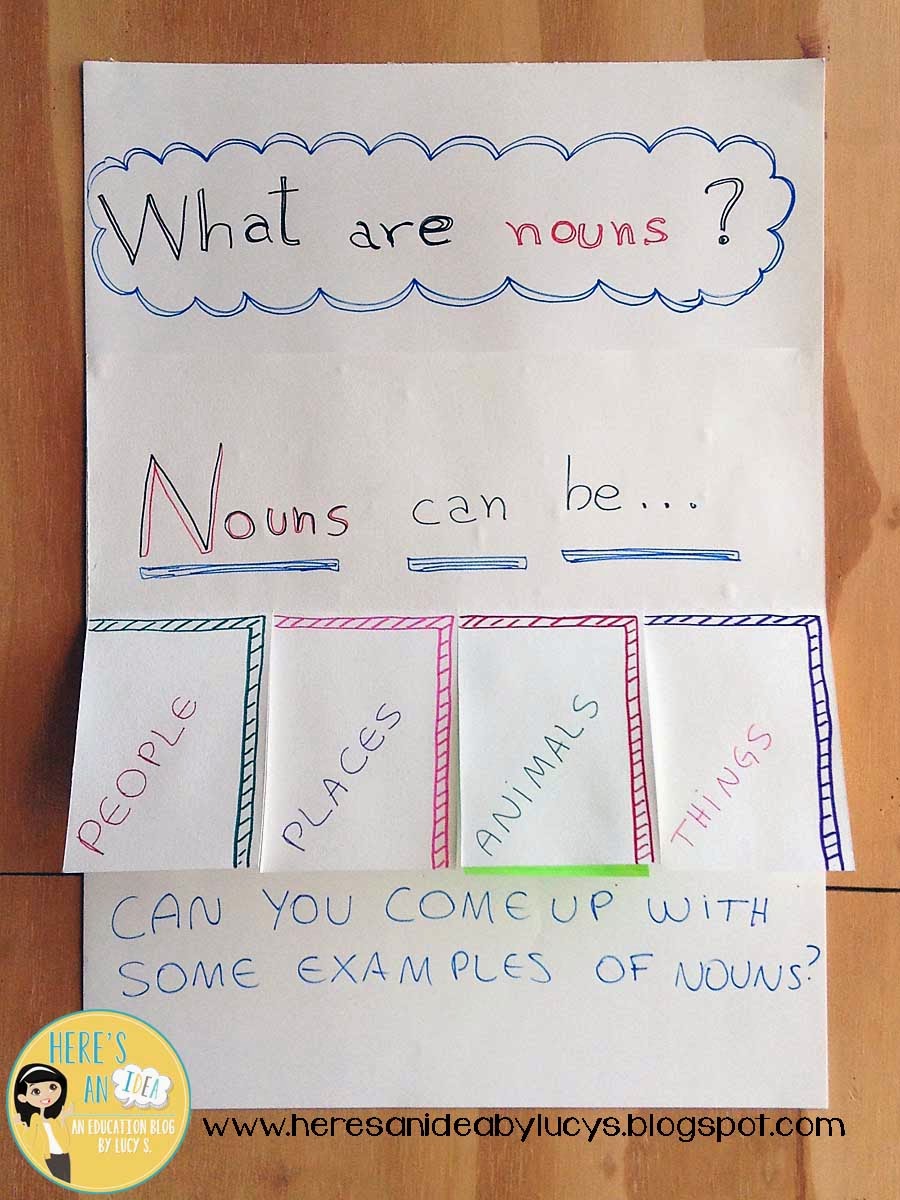 What are nouns ?
Nouns can be...
PEOPLE
PLACES
ANiMALS
THiNGS
CAN YOU COME UP WiTH
SOME EXAMPLES OF NOUNS?
HERE'S
AN IDEA
AN EDUCATION BLOG
BY LUCY S.
www.heresanideabylucys.blogspot.com